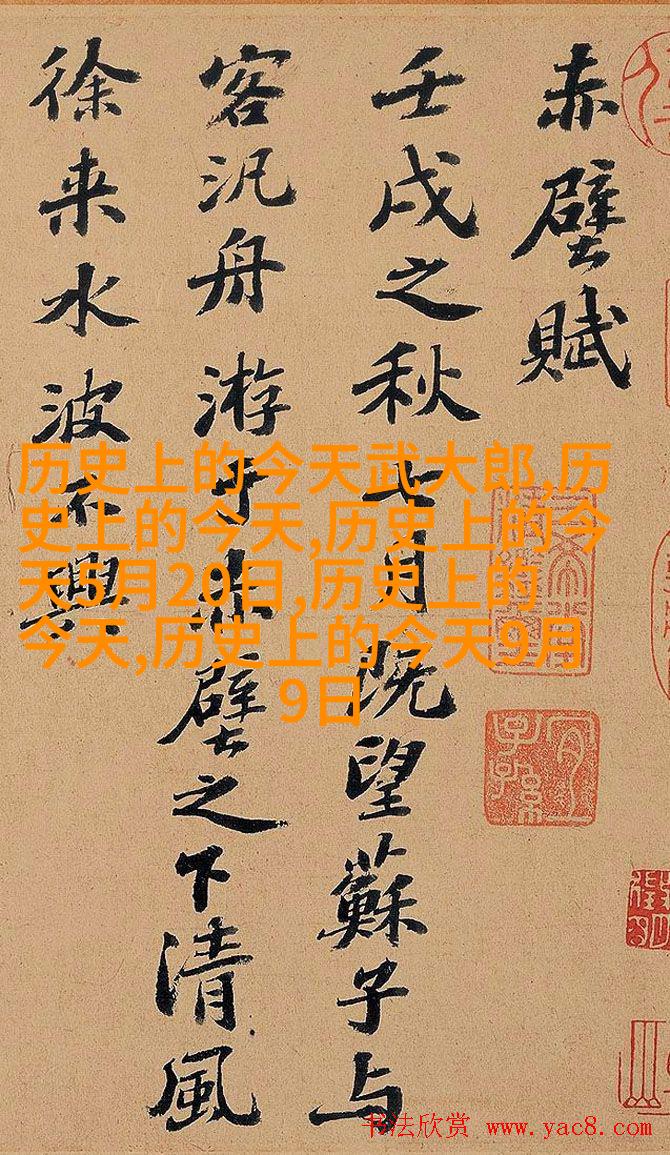 赤壁賦
壬戌之秋七月既望蘇子与
客汎舟游于赤壁之下清風
徐来水波不興
历史上的今天武大郎,历
史上的今天,历史上的今
天5月20日,历史上的
今天,历史上的今天9月
9日
书法欣赏 www.yac8.com